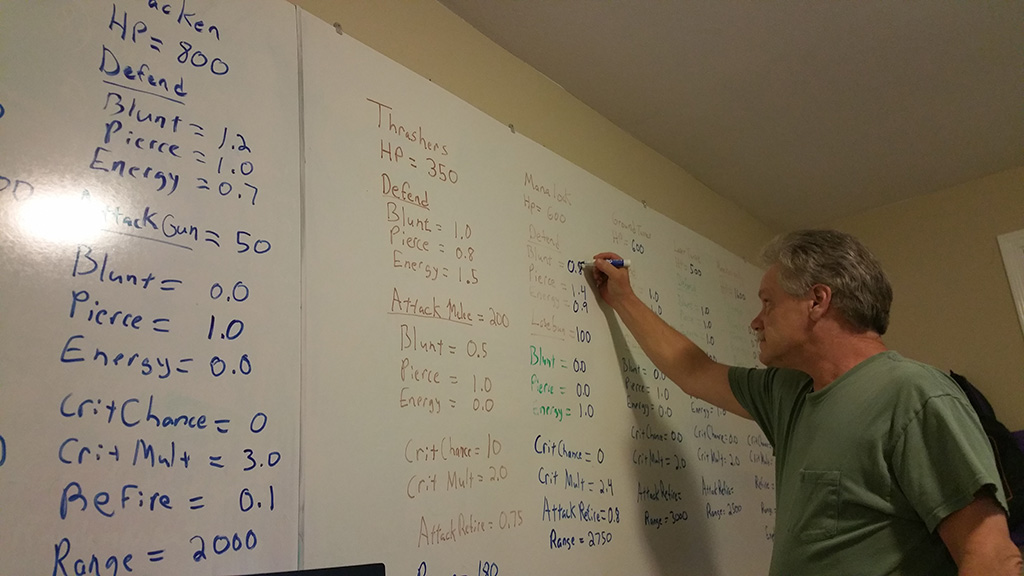 HP = 800
Defend
Blunt = 1.2
Pierce = 1.0
Energy = 0.7
AttackGun = 50
Blunt = 0.0
Pierce = 1.0
Energy = 0.0
CritChance = 0
Crit Mult = 3.0
ReFire = 0.1
Range = 2000
Thrashers
HP = 350
Defend
Blunt = 1.0
Pierce = 0.8
Energy = 1.5
Attack Melee = 200
Blunt = 0.5
Pierce = 1.0
Energy = 0.0
CritChance = 10
Crit Mult = 2.0
AttackRefire = 0.75
Hp = 600
Defend
Blunt =
Pierce = 1.4
Energy = 0.9
=100
Blunt = 0.0
Pierce = 0.0
Energy = 1.0
CritChance = 0
Crit Mult = 2.4
AttackRefire = 0.8
Range = 2750
HP = 600
1.0
Blunt = 0.0
Pierce = 1.0
Energy = 0.0
CritChance = 0.0
CritMult = 2.0
AttackRefire =
Range = 3000
500
1.0
1.0
1.0
Energy = 1.0
CritChance = 0.0
Crit Mult = 2.0
AttackRefire =
Range = 2500